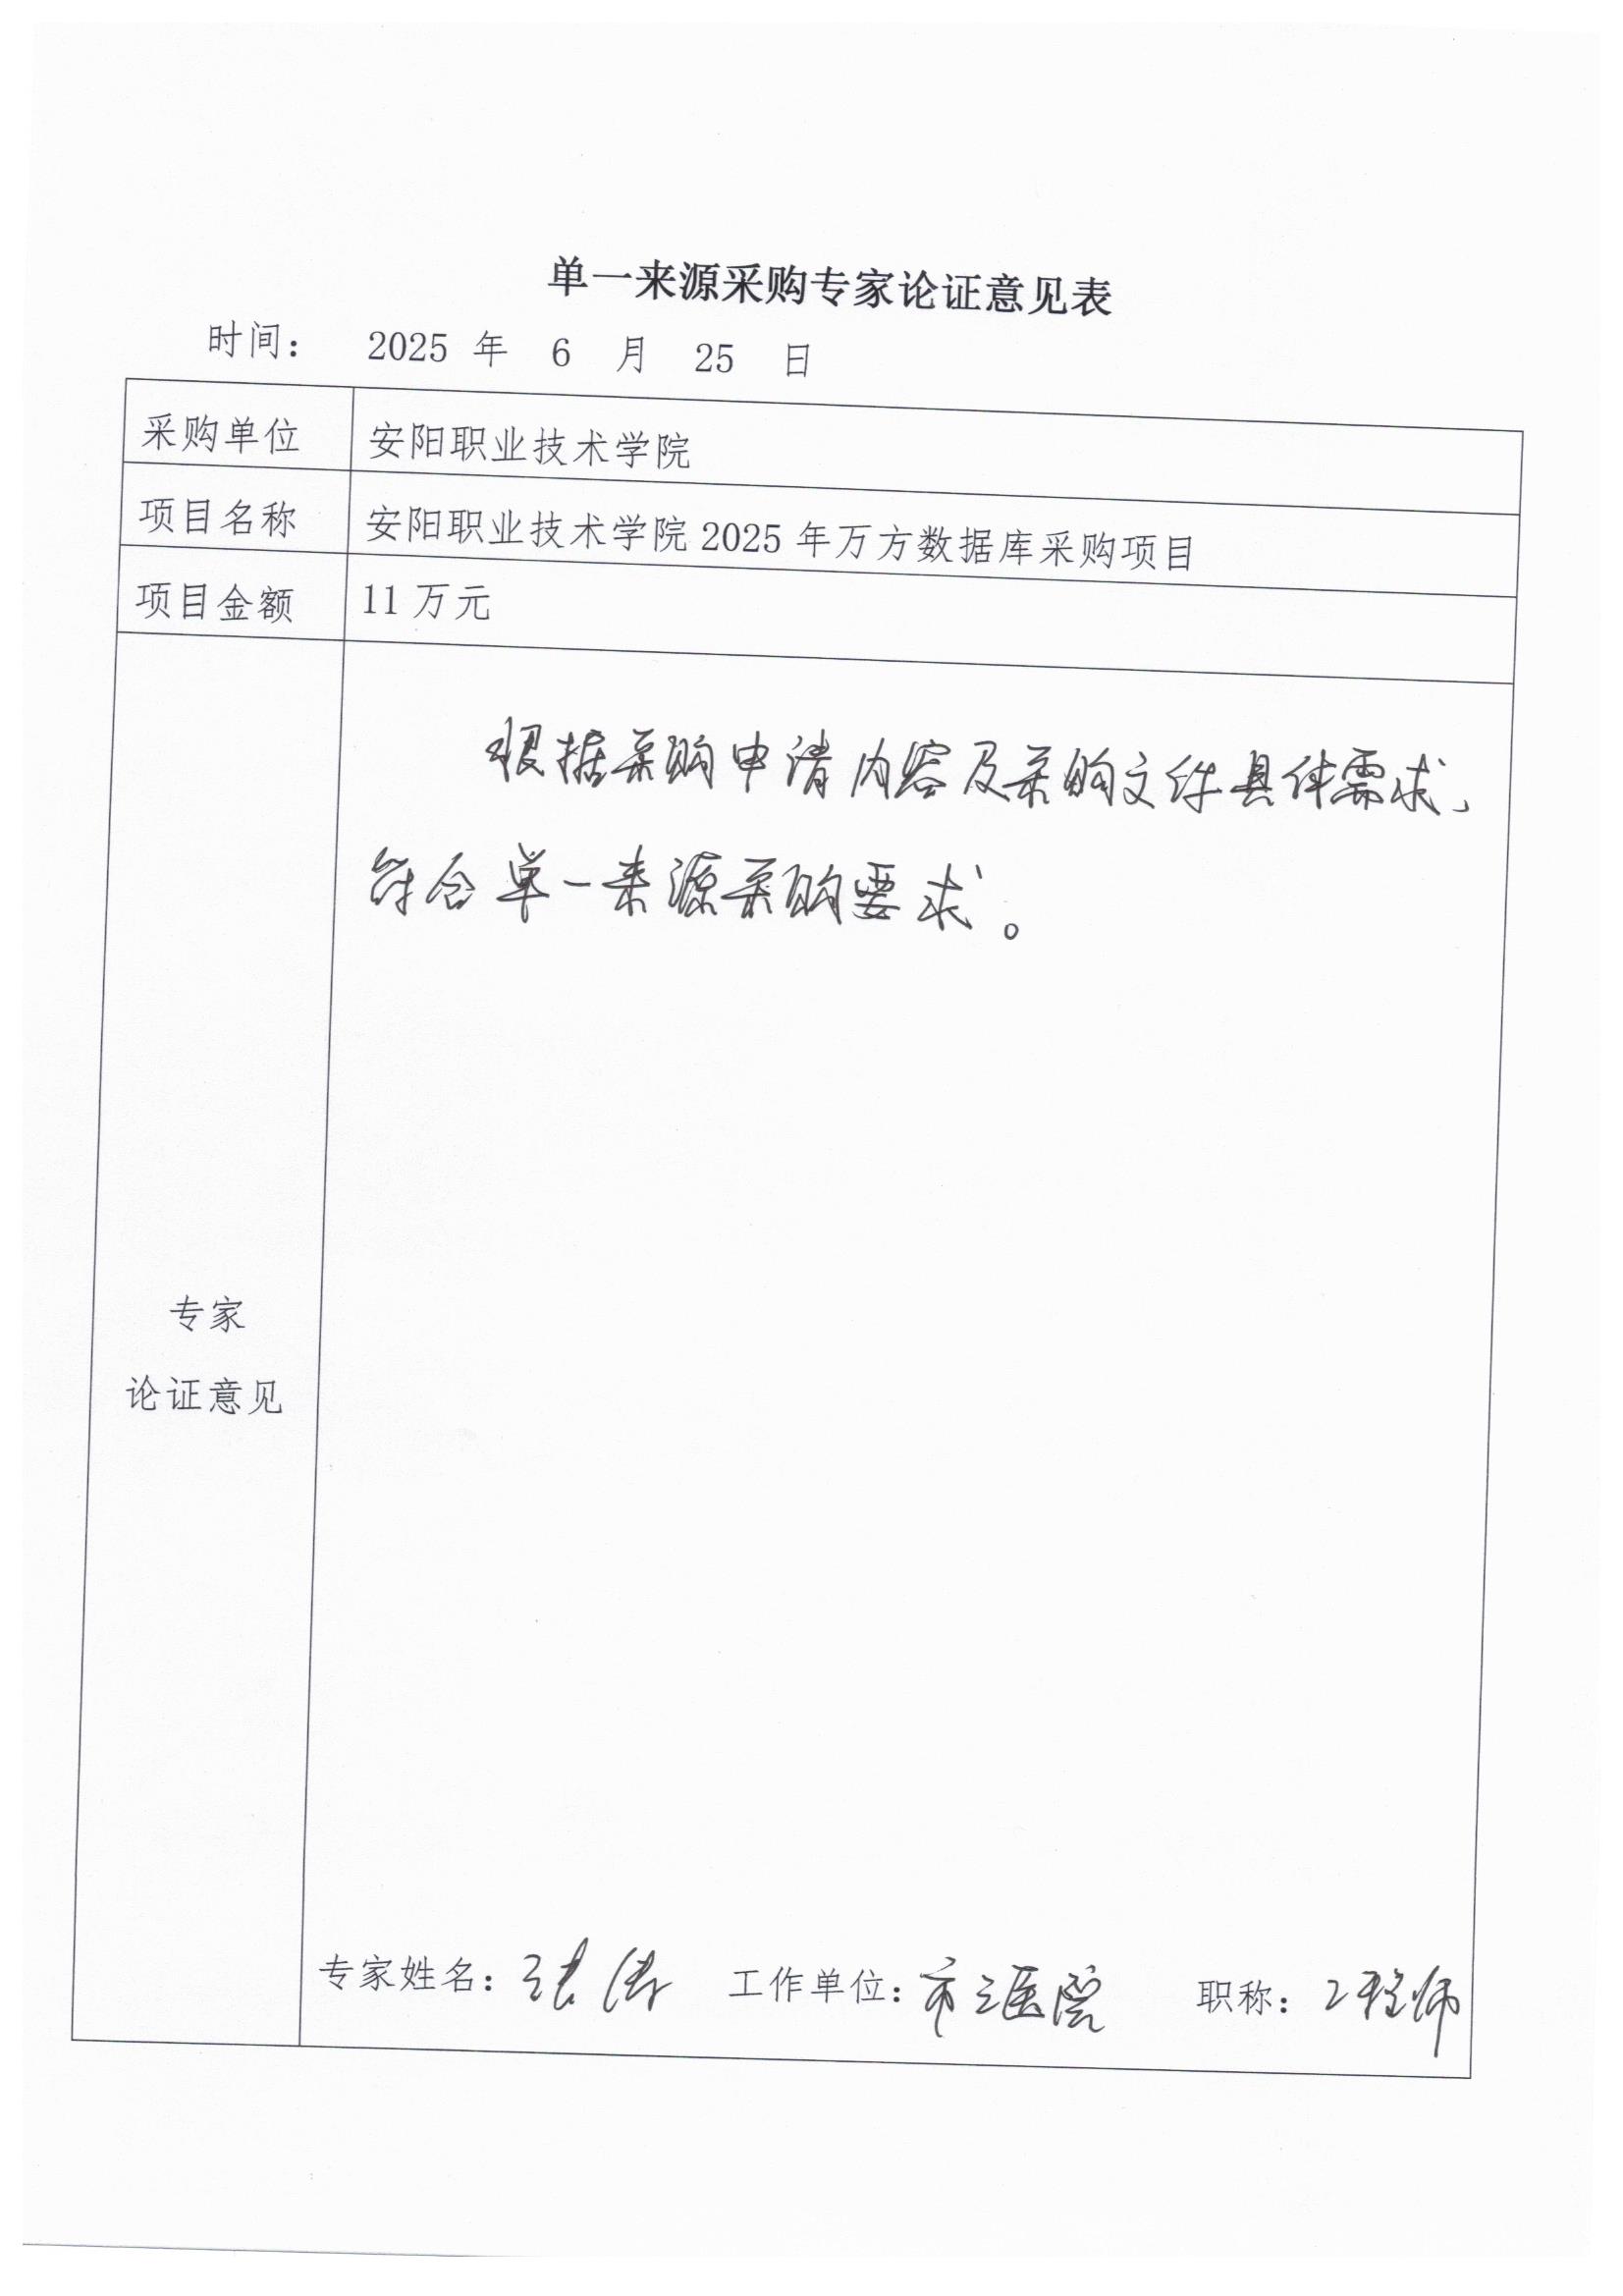 单一来源采购专家论证意见表
时间： 2025 年 6 月 25 日
采购单位 安阳职业技术学院
项目名称 安阳职业技术学院 2025 年万方数据库采购项目
项目金额 11 万元
根据采购申请内容及采购文件具体需求，
符合单一来源采购要求。
专家
论证意见
专家姓名：张涛 工作单位：市三医院 职称：工程师